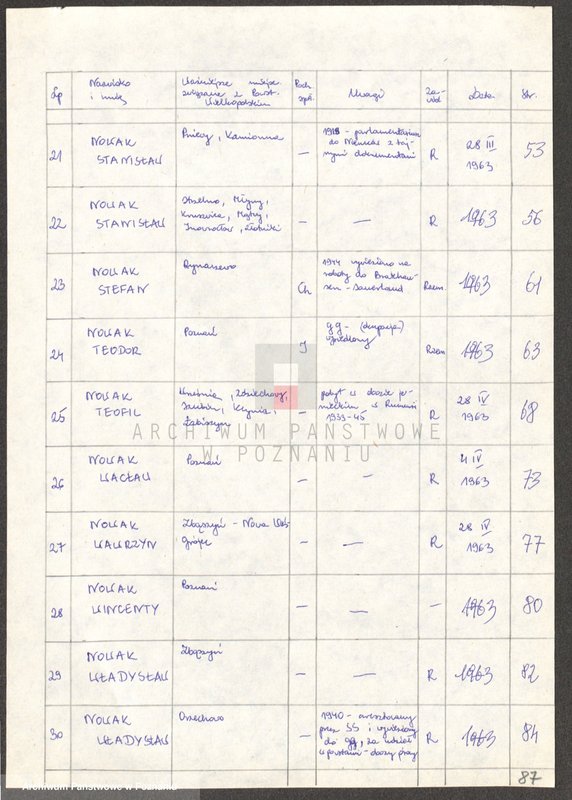 Lp
Nazwisko
i imię
Ważniejsze miejsc.
związane z Powst.
Wielkopolskim
Rodz.
Uwagi
Za-
wód
Data
Str.
21
NOWAK
STANISŁAW
Pniewy, Kamionna
—
1918 - parlamentariusz
do Niemców z taj-
nymi dokumentami
R
28 III
1963
53
22
NOWAK
STANISŁAW
Strzelno, Młyny,
Kruszwica, Mątwy,
Inowrocław, Złotniki
—
—
R
1963
56
23
NOWAK
STEFAN
Rynarzewo
Ch
1944 wywieziono na
roboty do
- Sauerland
Rzem.
1963
61
24
NOWAK
TEODOR
Poznań
J
gg - (okupacja)
wysiedlony
Rzem
1963
63
25
NOWAK
TEOFIL
Września, Zdziechowy,
Szubin, Kcynia,
Łabiszyn
—
pobyt w obozie je-
nieckim w Rumunii
1939-45
R
28 IV
1963
68
26
NOWAK
WACŁAW
Poznań
—
—
R
4 IV
1963
73
27
NOWAK
WAWRZYN
Zbąszyń - Nowa Wieś
—
—
R
28 IV
1963
77
28
NOWAK
WINCENTY
Poznań
—
—
—
1963
80
29
NOWAK
WŁADYSŁAW
Zbąszyń
—
—
R
1963
82
30
NOWAK
WŁADYSŁAW
Orzechowo
—
1940 - aresztowany
przez SS i wywieziony
do gg, za udział
w powstaniu -
R
1963
84
87
ARCHIWUM PAŃSTWOWE
W POZNANIU
Archiwum Państwowe w Poznaniu